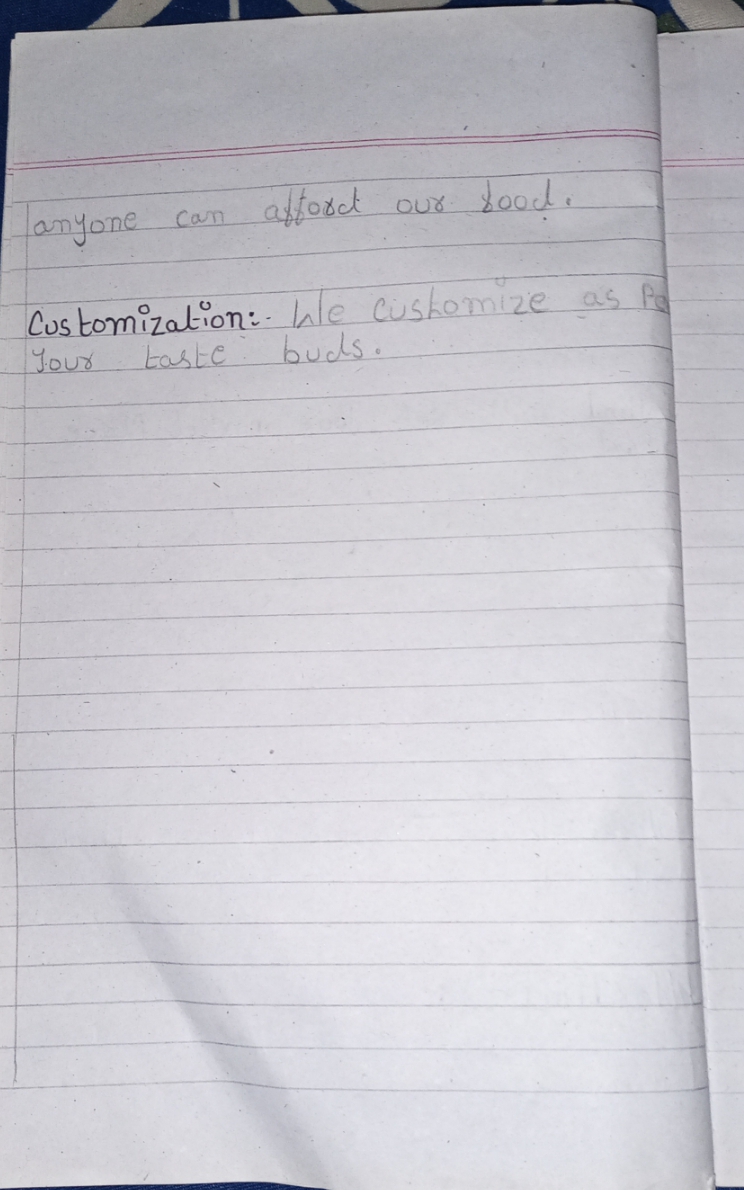 anyone can afford our food.
Customization:- We customize as Pe
Your taste buds.